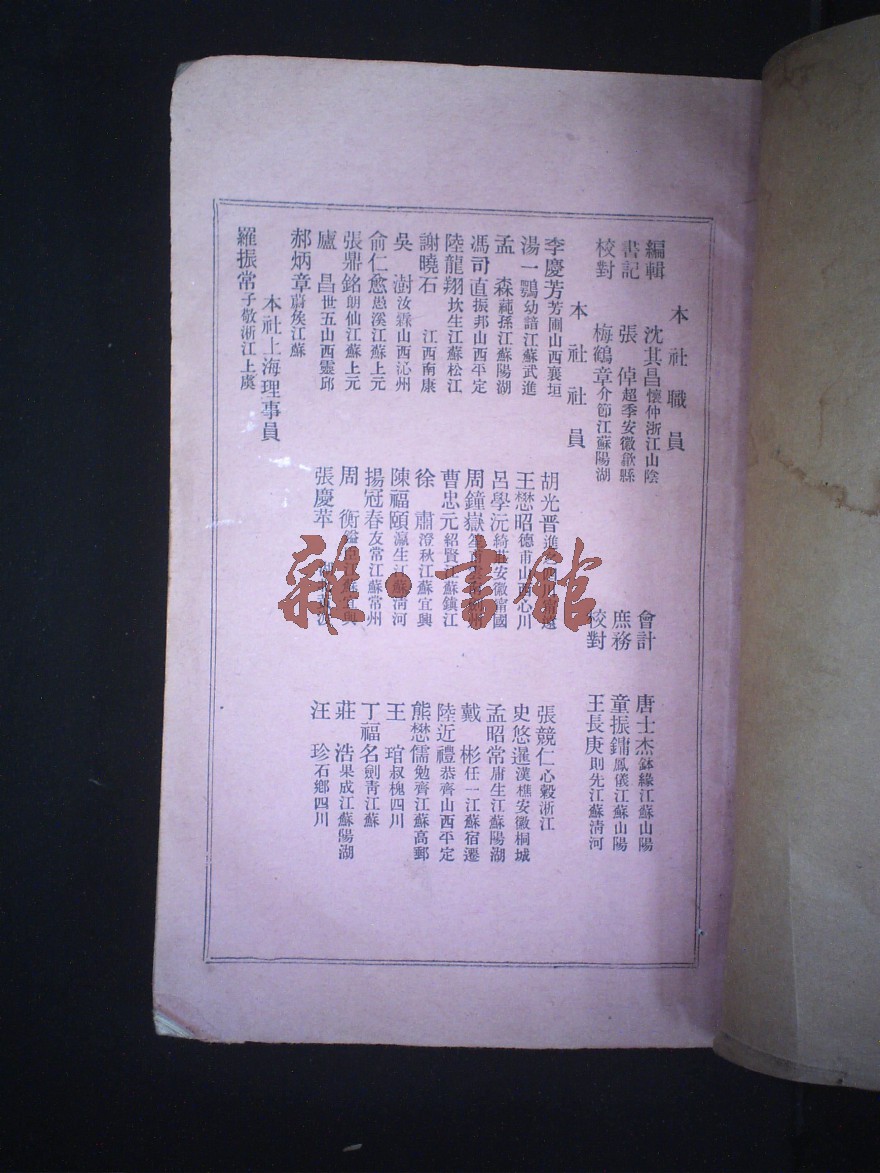 本社職員
編輯　沈其昌懷仲浙江山陰
書記　張倬超季安徽歙縣
校對　梅鶴章介節江蘇陽湖
會計　唐士杰鉢緣江蘇山陽
庶務　童振鏞鳳儀江蘇山陽
校對　王長庚則先江蘇清河
本社社員
李慶芳芳圃山西襄垣
湯一鶚幼諳江蘇武進
孟　森蓴孫江蘇陽湖
馮司直振邦山西平定
陸龍翔坎生江蘇松江
謝曉石　江西南康
吳　澍汝霖山西沁州
俞仁愈愚溪江蘇上元
張鼎銘朗仙江蘇上元
廬　昌世五山西靈邱
郝炳章蔚矦江蘇
胡光晋進
王懋昭德甫山西心川
呂學沅綺安徽國
周鐘嶽生
曹忠元紹賢江蘇鎮江
徐　肅澄秋江蘇宜興
陳福頤瀛生江蘇清河
揚冠春友常江蘇常州
周　衡江蘇宜興
張慶苹
張競仁心穀浙江
史悠暹漢樵安徽桐城
孟昭常庸生江蘇陽湖
戴　彬任一江蘇宿遷
陸近禮恭齊山西平定
熊懋儒勉齊江蘇高郵
王　琯叔槐四川
丁福名劍青江蘇
莊　浩果成江蘇陽湖
汪　珍石鄉四川
本社上海理事員
羅振常子敬浙江上虞
雜·書館